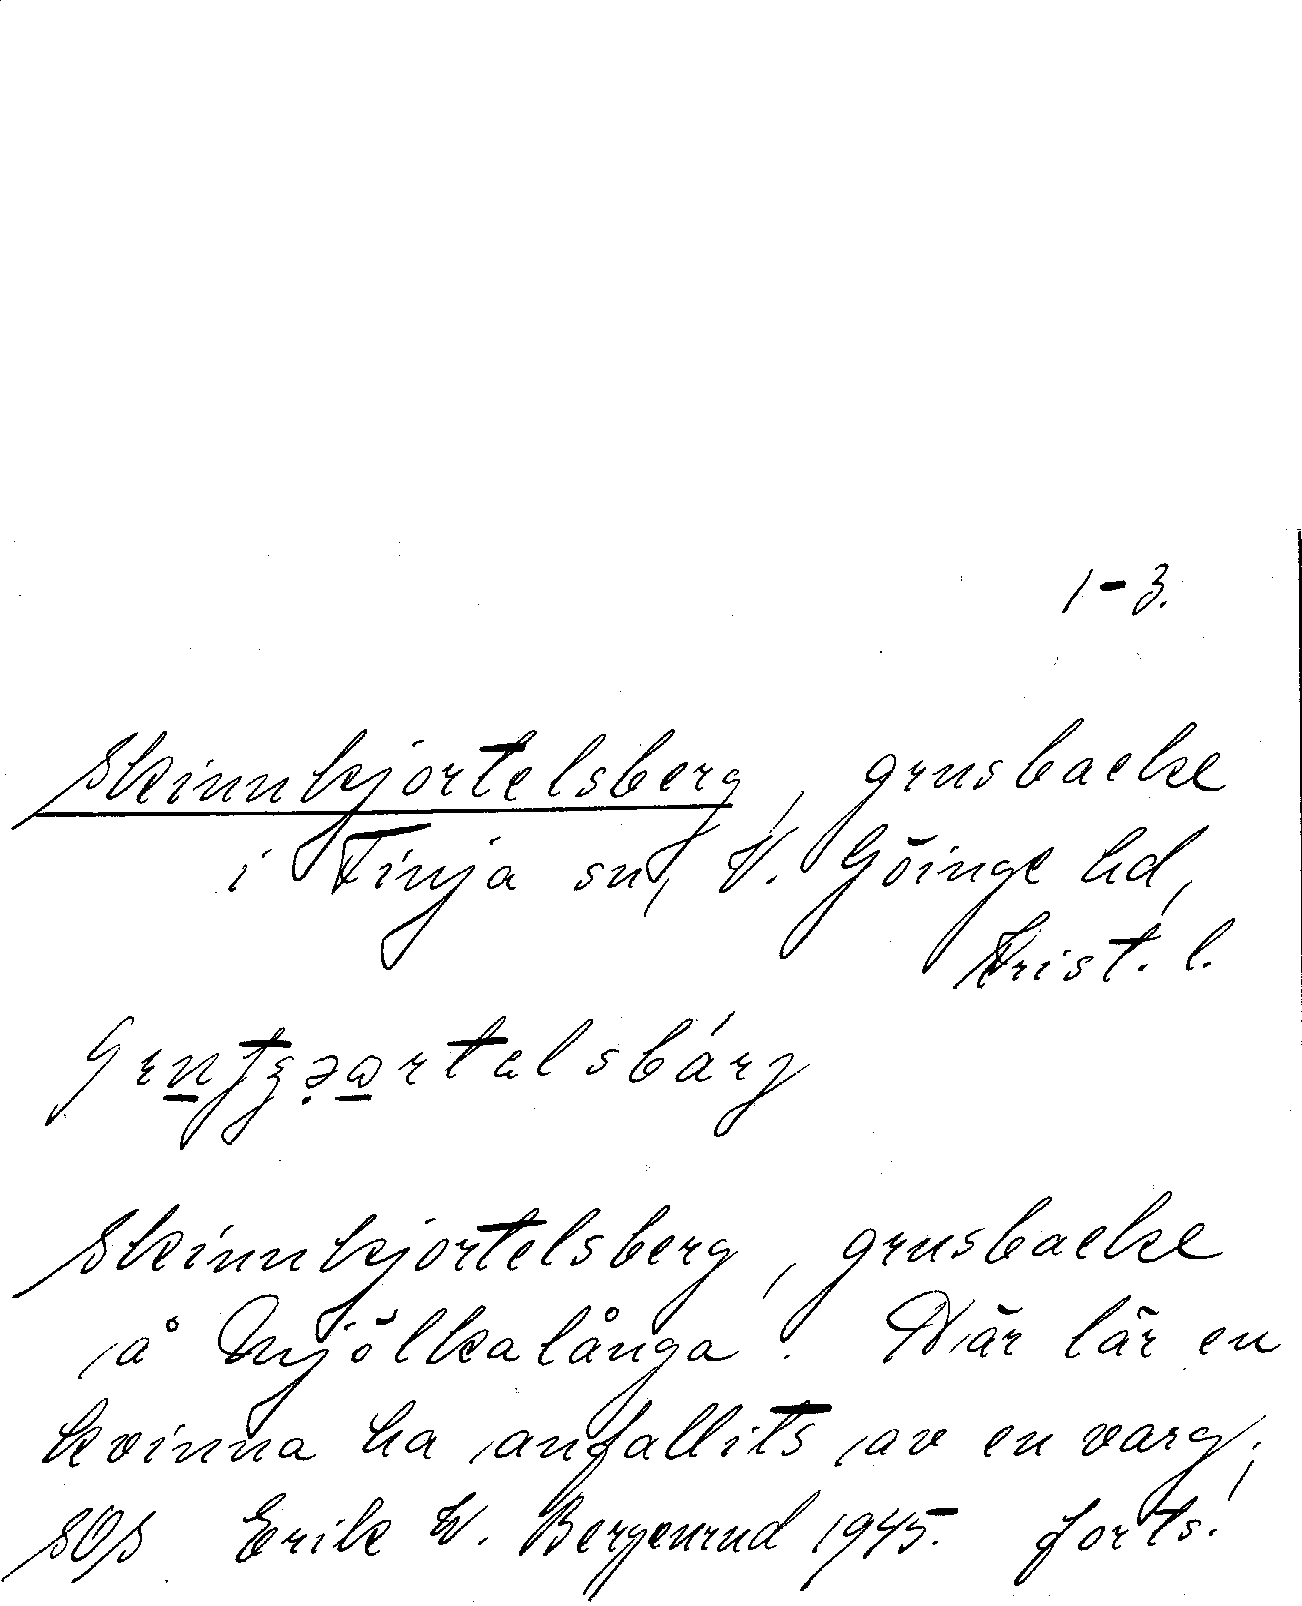 1-3.
Skinnkjortelsberg, grusbacke
i Finja sn, V. Göinge hd,
Krist. l.
Skinnkjortelsberg, grusbacke
å Mjölkalånga. Där lär en
kvinna ha anfallits av en varg;
SOS Erik W. Bergenrud 1945. forts.